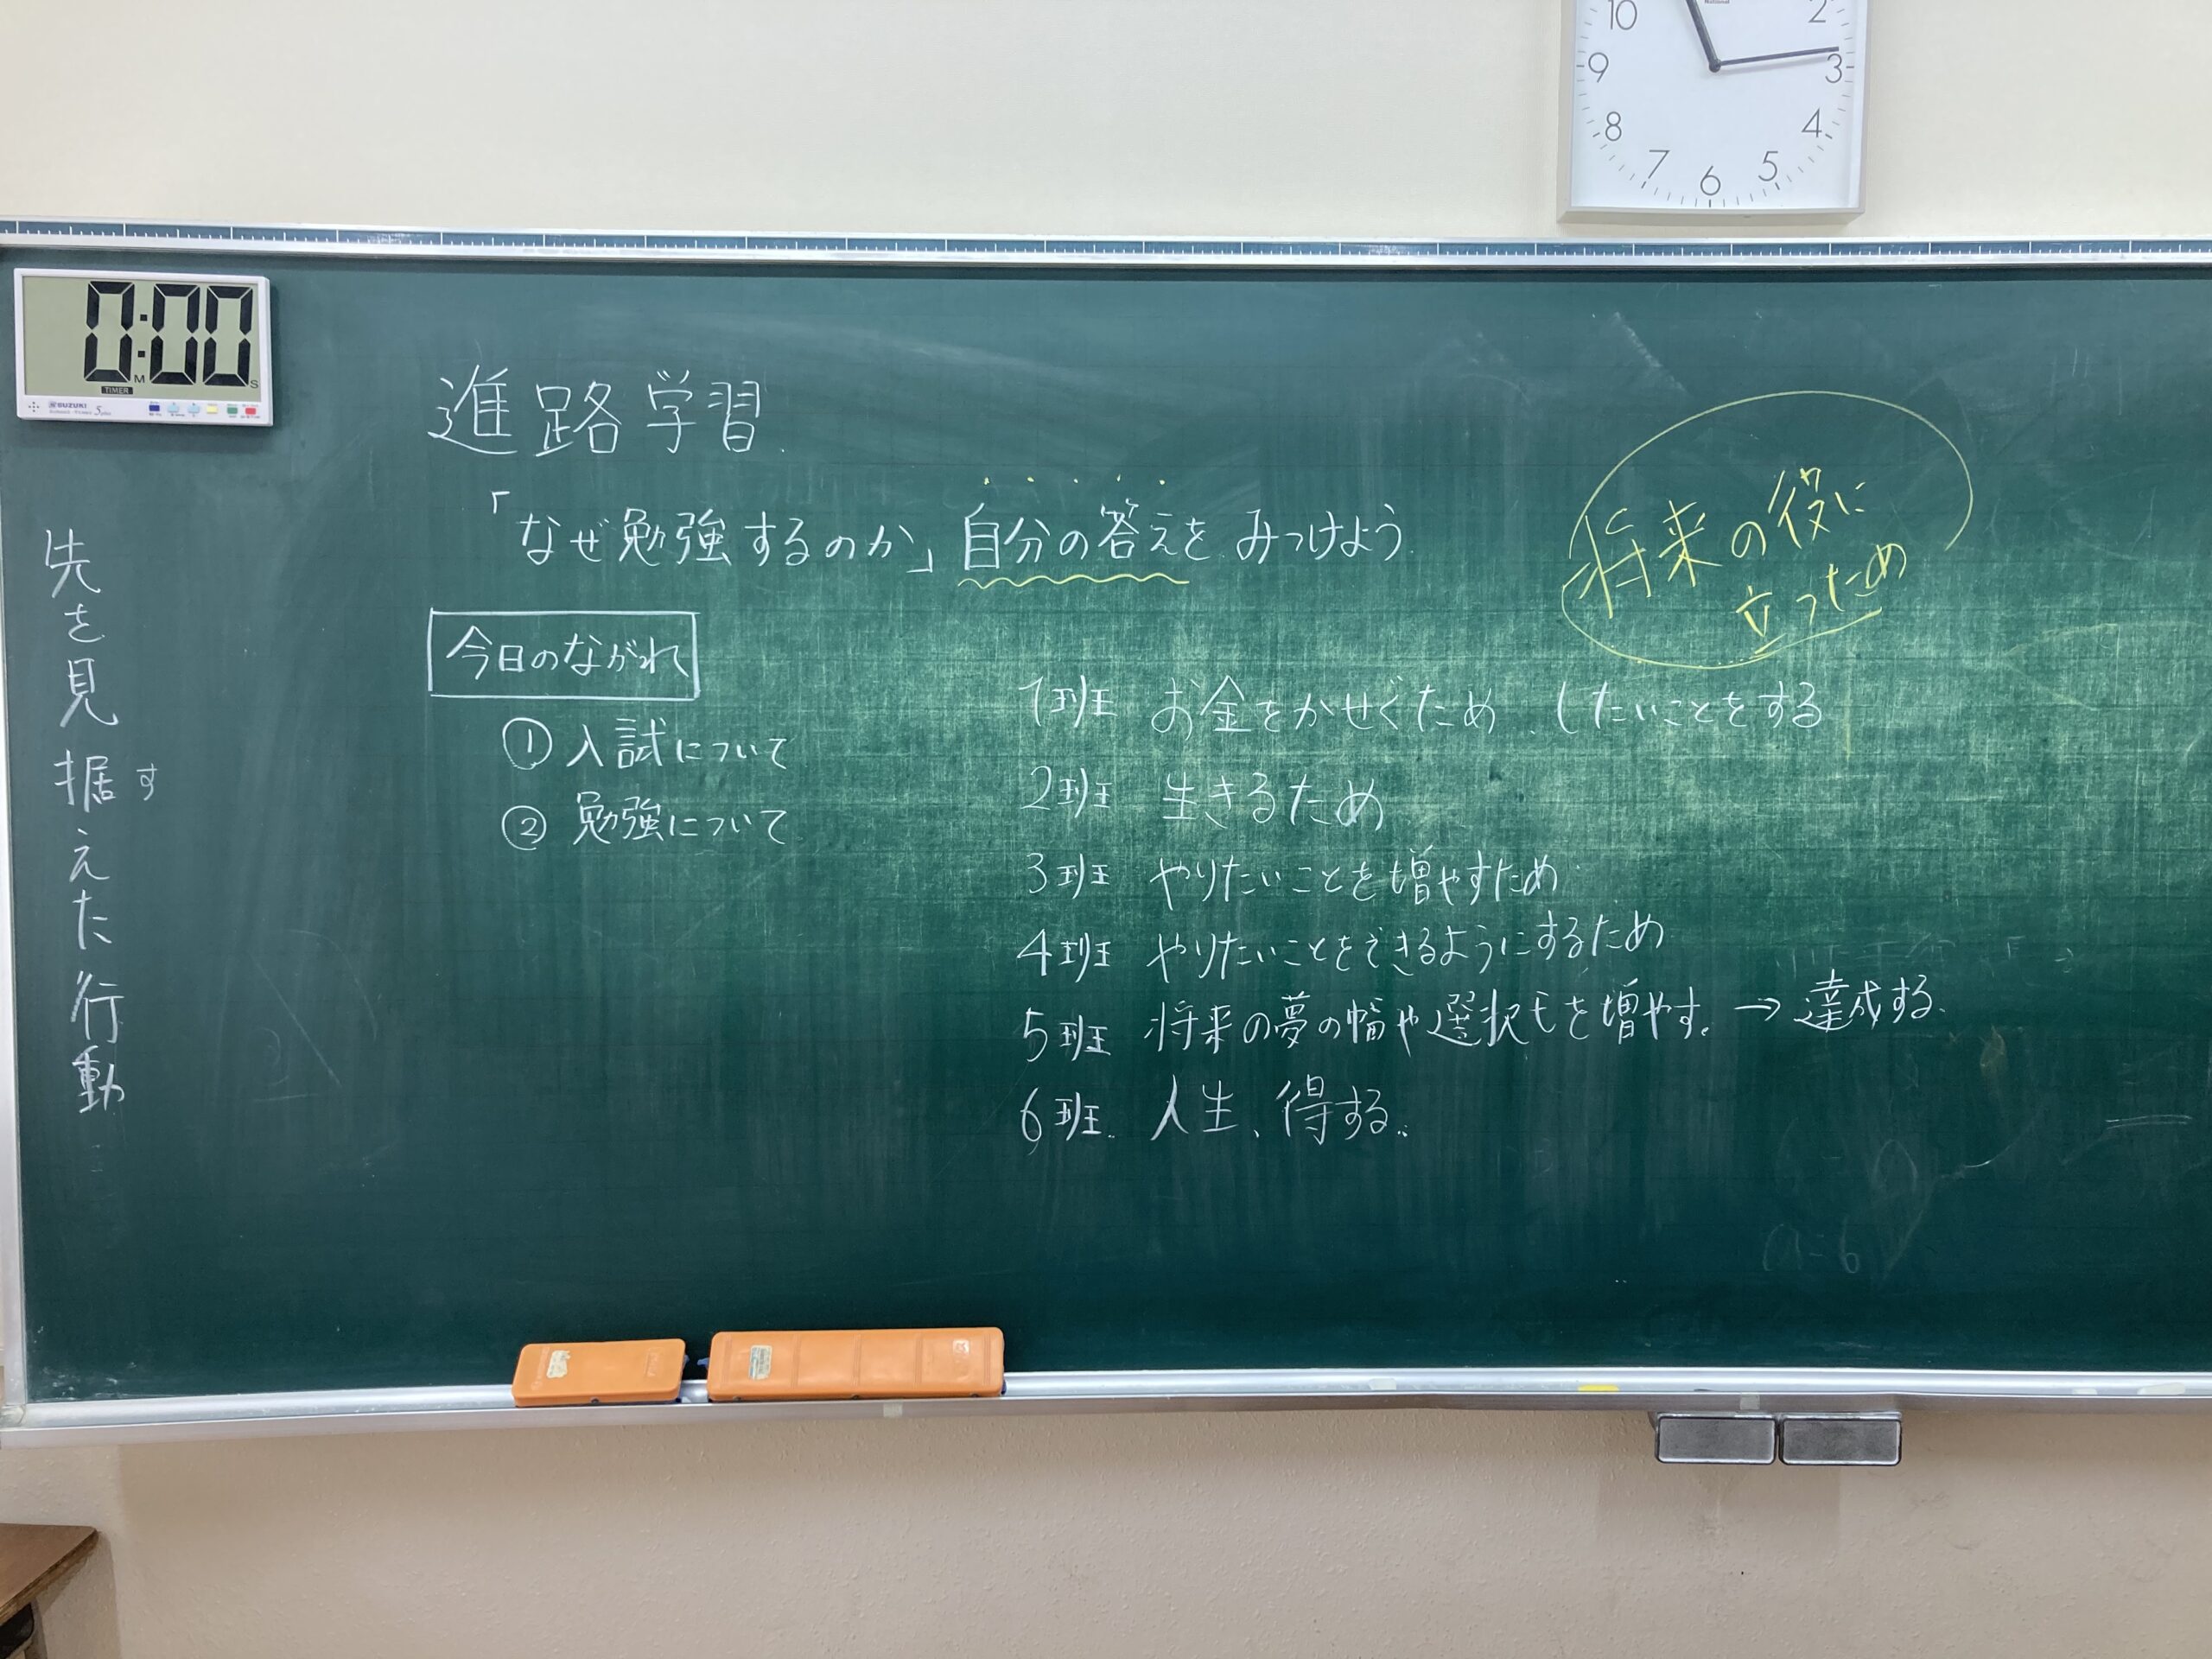 10
2
9
3
8
4
7
5
6
National
0:00
M
S
TIMER
SUZUKI
進路学習
「なぜ勉強するのか」自分の答えをみつけよう
将来の役に
立つため
今日のながれ
① 入試について
② 勉強について
1班 お金をかせぐため、したいことをする
2班 生きるため
3班 やりたいことを増やすため
4班 やりたいことをできるようにするため
5班 将来の夢の幅や選択しを増やす。→達成する。
6班. 人生、得する。
先を見据えた行動
す